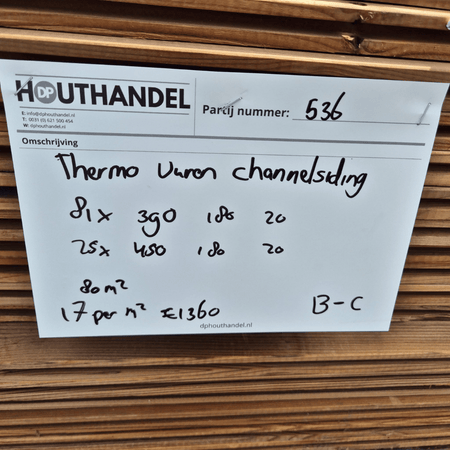 HOUTHANDEL
DP
E: info@dphouthandel.nl
T: 0031 (0) 621 500 454
W: dphouthandel.nl
Partij nummer: 536
Omschrijving
Thermo vuren channelsiding
81x 390 180 20
25x 450 180 20
80 m²
17 per m² €1360
B-C
dphouthandel.nl